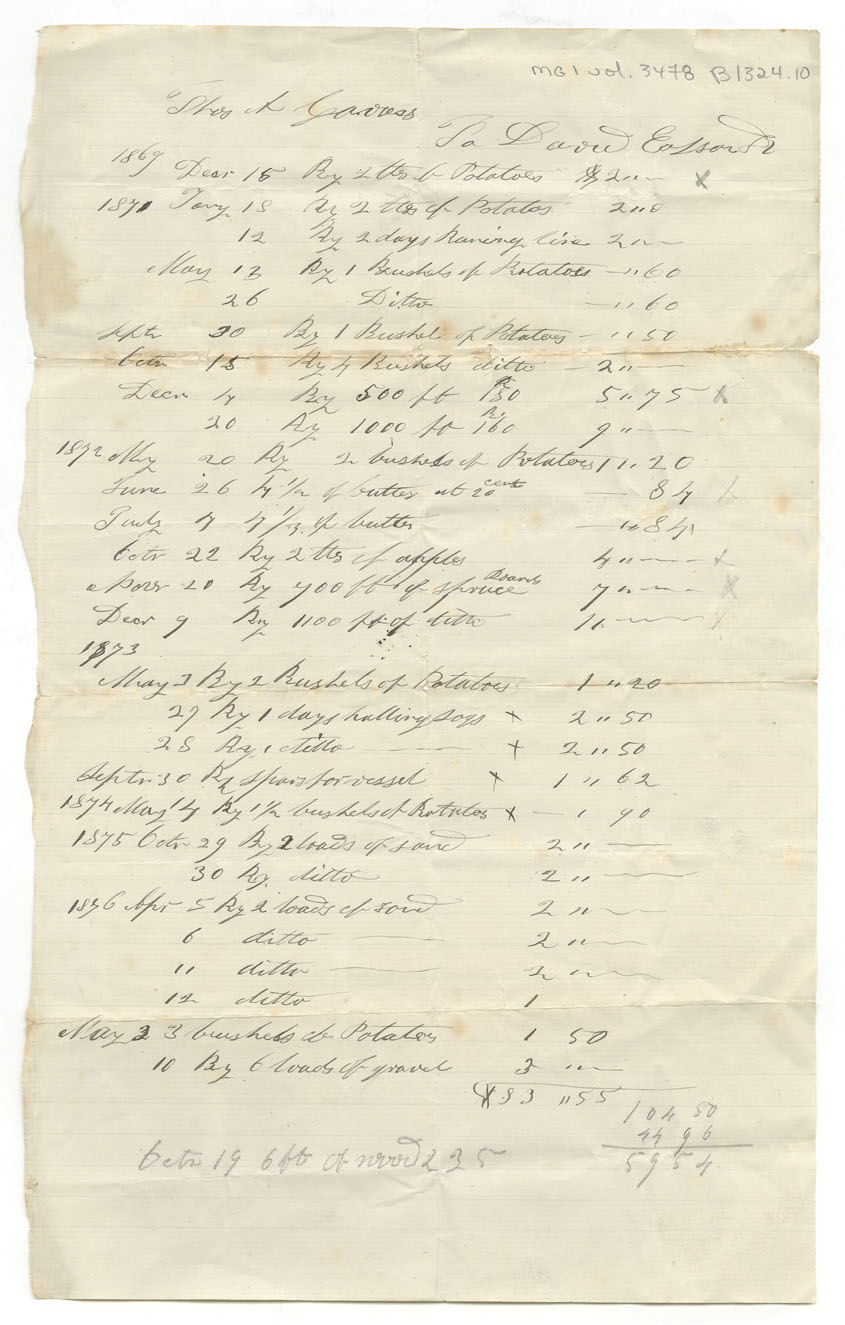 MG 1 vol. 3478 B1324.10
Thos A
To David
1869 Decr 15 By 2 tts of Potatoes $2 " —
1871 Jany 18 By 2 tts of Potatos 2 " 0
12 By 2 days 2 " —
May 13 By 1 Bushels of Potatoes — " 60
26 Ditto — " 60
septr 30 By 1 Bushel of Potatoes — " 50
Octr 15 By 4 Bushels ditto — 2 " —
Decr 4 By 500 ft 5 " 75 x
20 By 1000 ft 9 " —
1872 May 20 By 2 bushels of Potatoes 1 " 20
June 26 4 1/2 of butter at 20 cents — 84
July 7 4 1/2 of butter — " 84
Octr 22 By 2 tts of apples 4 " — x
Novr 20 By 700 ft of spruce Boards 7 " — x
Decr 9 By 1100 ft of ditto 11 — x
1873
May 3 By 2 Bushels of Potatoes 1 " 20
27 By 1 days halling logs x 2 " 50
28 By 1 ditto — x 2 " 50
Septr 30 By spars for vessel x 1 " 62
1874 May 14 By 1 1/2 bushels of Potatoes x — " 90
1875 Octr 29 By 2 loads of sand 2 " —
30 By ditto 2 " —
1876 Apr 5 By 2 loads of sand 2 " —
6 ditto — 2 " —
11 ditto — 2 " —
12 ditto 1
May 2 3 bushels of Potatoes 1 50
10 By 6 loads of gravel 3 " —
83 " 55
104 50
44 96
59 54
Octr 19 6 ft of wood 2 25